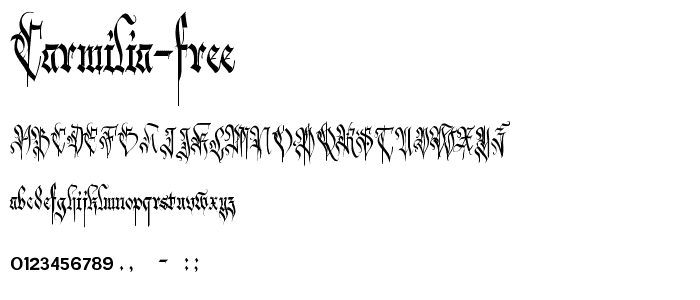 Carmilia-free
ABCDEFGHIJKLMNOPQRSTUVWXYZ
abcdefghijklmnopqrstuvwxyz
0123456789 . , - : ;